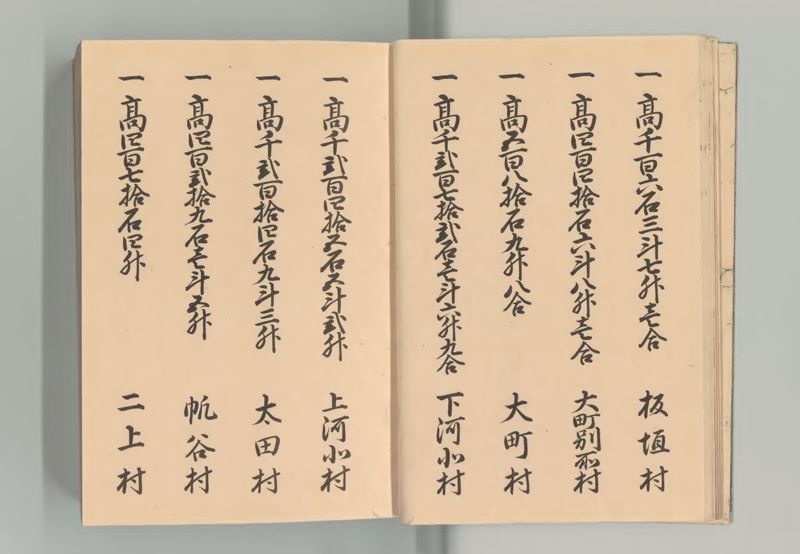 一高千百六石三斗七升壱合 板垣村
一高四百四拾石六斗八升壱合 大町別所村
一高五百八拾石九升八合 大町村
一高千弐百七拾弐石壱斗六升九合 下河北村
一高千弐百四拾五石五斗弐升 上河北村
一高千弐百拾四石九斗三升 太田村
一高四百弐拾九石壱斗五升 帆谷村
一高四百七拾石四升 二上村